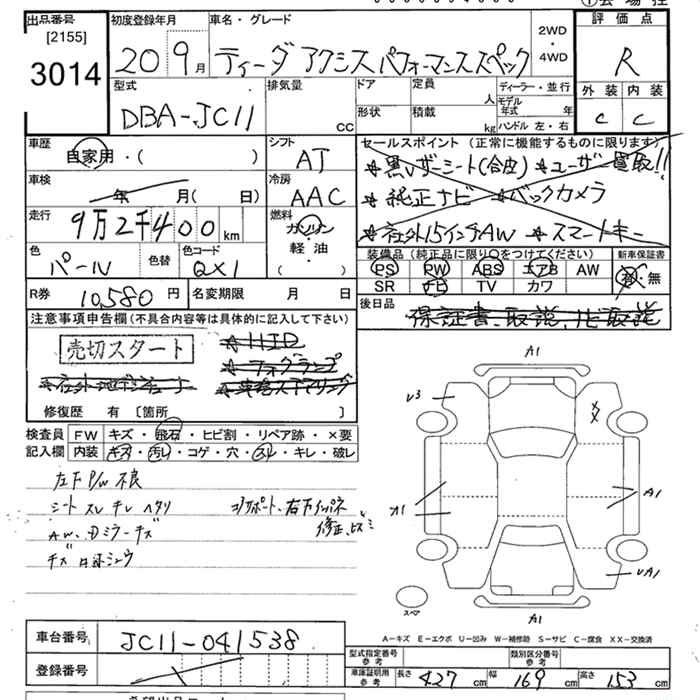 出品番号 初度登録年月 車名・グレード 2WD・4WD 評価点
[2155]
3014
20 9月 ティーダ アクシスパフォーマンススペック R
型式 排気量 ドア 定員 ディーラー・並行 外装 内装
DBA-JC11 CC 形状 積載 人 kg モデル年式 年 ハンドル 左・右 C C
車歴 シフト セールスポイント(正常に機能するものに限ります)
自家用・( ) AT ★黒レザーシート(合皮) ★ユーザー買取!!
車検 冷房 ★純正ナビ ★バックカメラ
年 月( 日) AAC ★社外15インチAW ★スマートキー
走行 燃料
9万2千400km ガソリン 軽・油 ( )
色 色替 色コード 装備品(純正品に限り○をつけてください) 新車保証書
パール QX1 PS PW ABS エアB AW 有・無
SR ナビ TV カワ
R券 10,580円 名変期限 月 日 後日品
注意事項申告欄(不具合内容等は具体的に記入して下さい) 保証書、取説、ナビ取説
売切スタート ★HID
★フォグランプ
修復歴 有 〔箇所 〕
検査員 FW キズ・飛石・ヒビ割・リペア跡・×要
記入欄 内装 キズ・汚レ・コゲ・穴・スレ・キレ・破レ
左F P/W 不良
シート スレ キレ ヘタリ コアサポート、右Fインパネ
AW、Dミラーキズ 修正
A1
U3
A1
A1
UA1
A1
スペア
A−キズ E−エクボ U−凹み W−補修跡 S−サビ C−腐食 XX−交換済
車台番号 JC11-041538
登録番号
型式指定番号 参考 類別区分番号 参考
車庫証明用 参考 長さ 427 cm 幅 169 cm 高さ 153 cm